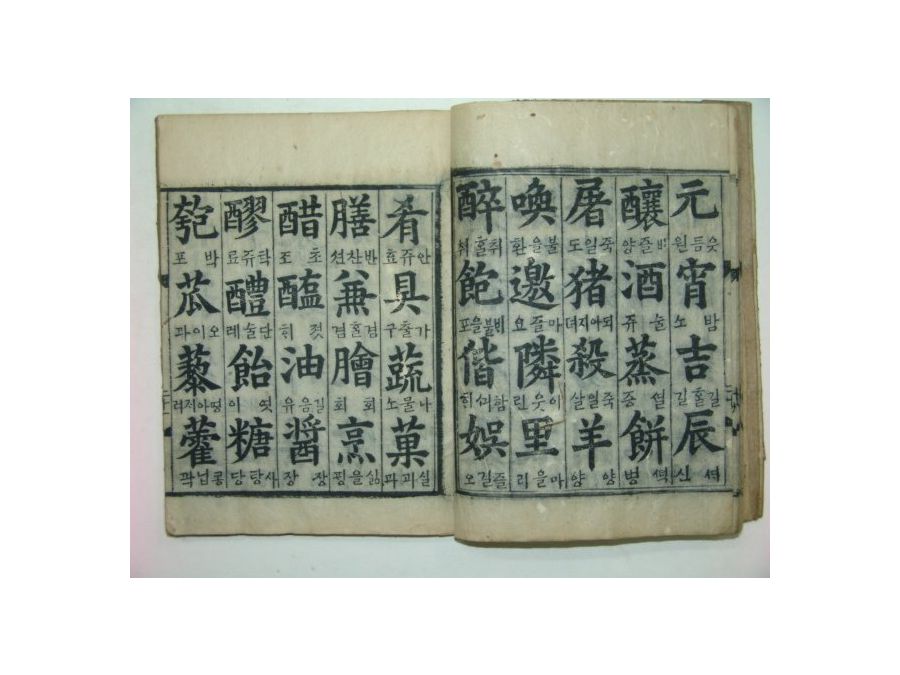 元 읏듬원 宵 밤 吉 길홀길 辰 신
釀 비즐양 酒 술쥬 蒸 증 餠 병
屠 죽일도 猪 되아지뎌 殺 죽일살 羊 양양
喚 불을환 邀 마즐요 隣 이웃린 里 마을리
醉 취홀취 飽 포 偕 娛 즐길오
肴 안쥬효 具 가출구 蔬 나물소 菓 실과과
膳 반찬션 兼 겸홀겸 膾 회회 烹 삶을핑
醋 초조 醢 젓 油 기름유 醬 장장
醪 탁쥬료 醴 단술례 飴 엿이 糖 사탕당
匏 박포 瓜 오이과 藜 려 藿 콩닙곽